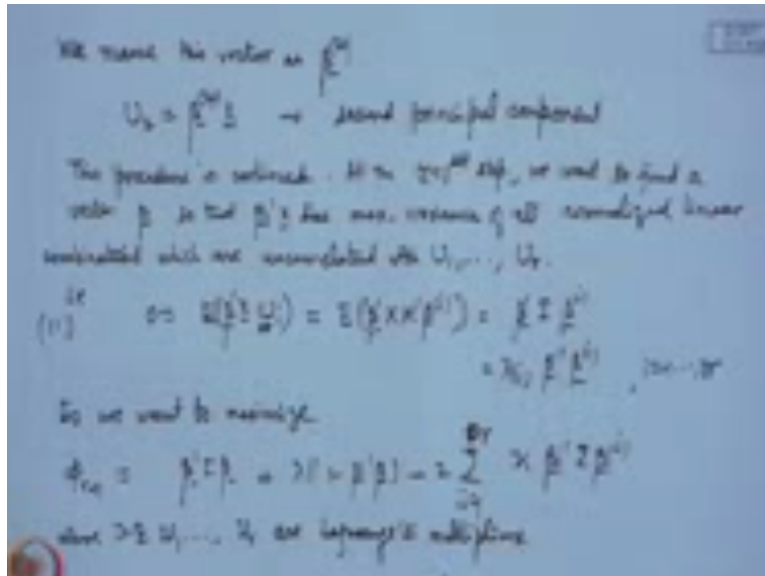 We name this vector as β⁽²⁾
U₂ = β⁽²⁾' X → second principal component
The procedure is continued. At the r+1st step, we want to find a
vector β so that β'X has max. variance of all normalized linear
combinations which are uncorrelated with U₁, ..., Uᵣ.
(11) 0 = E(β'X Uᵢ) = E(β'XX'β⁽ⁱ⁾) = β'Σβ⁽ⁱ⁾
= λ₍ᵢ₎ β'β⁽ⁱ⁾, i=1...r
So we want to maximize
φᵣ₊₁ = β'Σβ + λ(1-β'β) - 2 Σ β'Σβ⁽ⁱ⁾
where λ ν₁, ..., νᵣ are Lagrange's multipliers